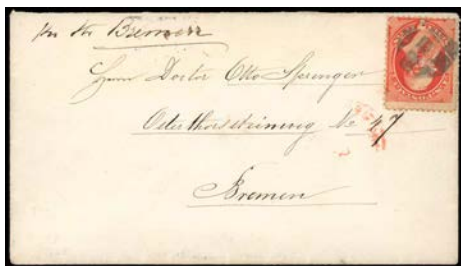 per Str Bremen
Herrn Doctor Otto Sprenger
Osterthorssteinweg No 47
Bremen